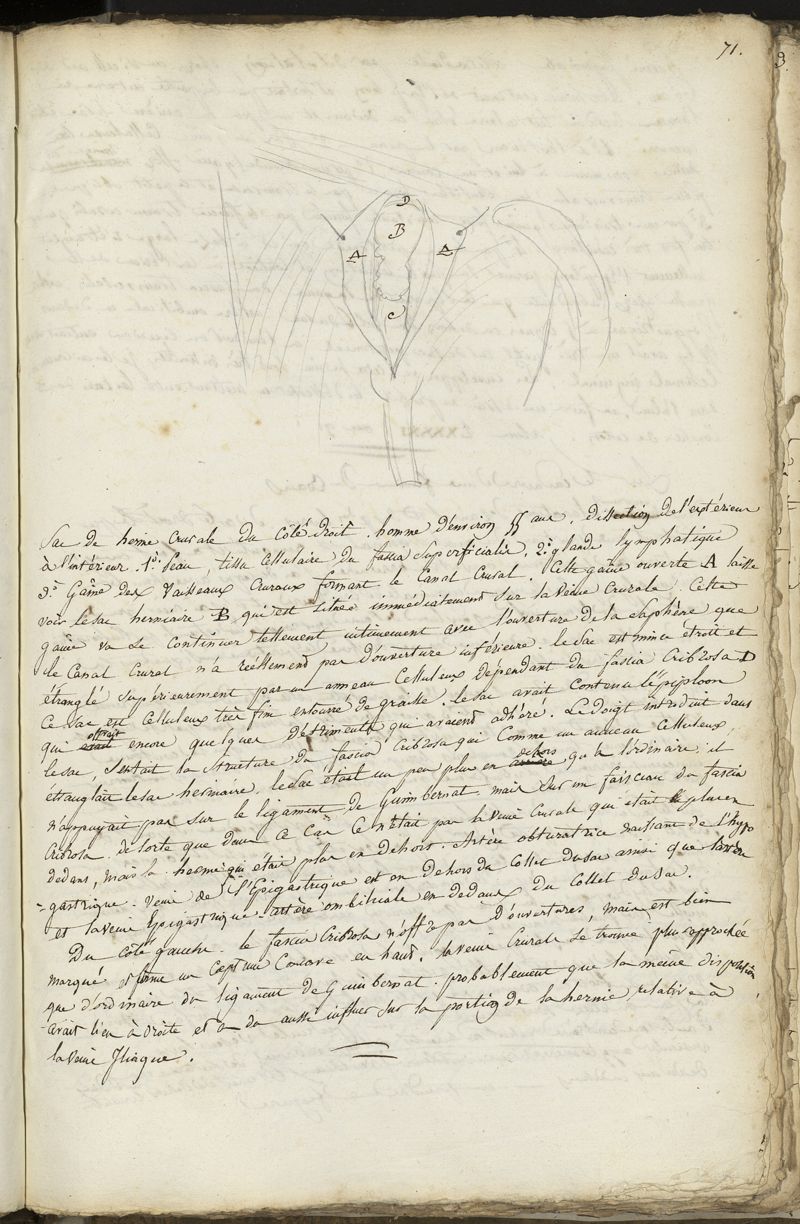 71.
D
B
A
A
C
Sac de hernie Crurale du Côté droit. homme d'environ 55 ans. dissection de l'extérieur
à l'intérieur. 1.° Peau, tissu Cellulaire du fascia Superficialis. 2.° glande lymphatique
3.° Gaîne des Vaisseaux Cruraux formant le Canal Crural. Cette gaîne ouverte A laisse
voir le sac herniaire B qui est située immédiatement sur la Veine Crurale. Cette
gaîne va se Continuer tellement intimement avec l'ouverture de la Saphène que
le Canal Crural n'a réellement pas d'ouverture inférieure. le Sac est mince étroit et
étranglé supérieurement par un anneau Celluleux dépendant du fascia Cribrosa D
Ce sac est Celluleux très fin entouré de graisse. le sac avait Contenu l'épiploon
qui offrait encore quelques détriments qui avaient adhéré. Le doigt introduit dans
le sac, Sentait la structure du fascia Cribrosa qui Comme un anneau Celluleux,
étranglait le sac herniaire. le Sac était un peu plus en dehors qu'à l'ordinaire; il
n'appuyait pas sur le ligament de Guimbernat. mais Sur un faisceau du fascia
Cribrosa. de sorte que dans Ce Cas Ce n'était pas la Veine Crurale qui était le plus en
dedans, mais la hernie qui était plus en dehors. Artère obturatrice naissant de l'hypo
-gastrique. Veine de l'Epigastrique est en dehors du Collet du sac ainsi que l'artère
et la veine Epigastrique. artère ombilicale en dedans du Collet du sac.
Du Côté gauche. le fascia Cribrosa n'offre pas d'ouvertures, mais est bien
marqué & forme un Septum Concave en haut. la veine Crurale se trouve plus rapprochée
que d'ordinaire du ligament de Guimbernat. probablement que la même disposition
avait lieu à droite et a du aussi influer sur la position de la hernie, relative à
la veine Iliaque.